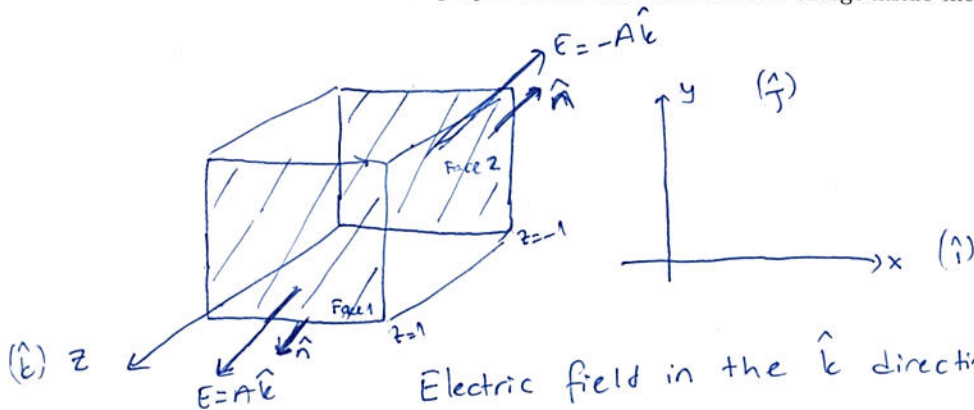 E = -Ak̂
n̂
y (ĵ)
Face 2
z=-1
x (î)
Face 1
z=1
n̂
(k̂) z
E=Ak̂
Electric field in the k̂ directi